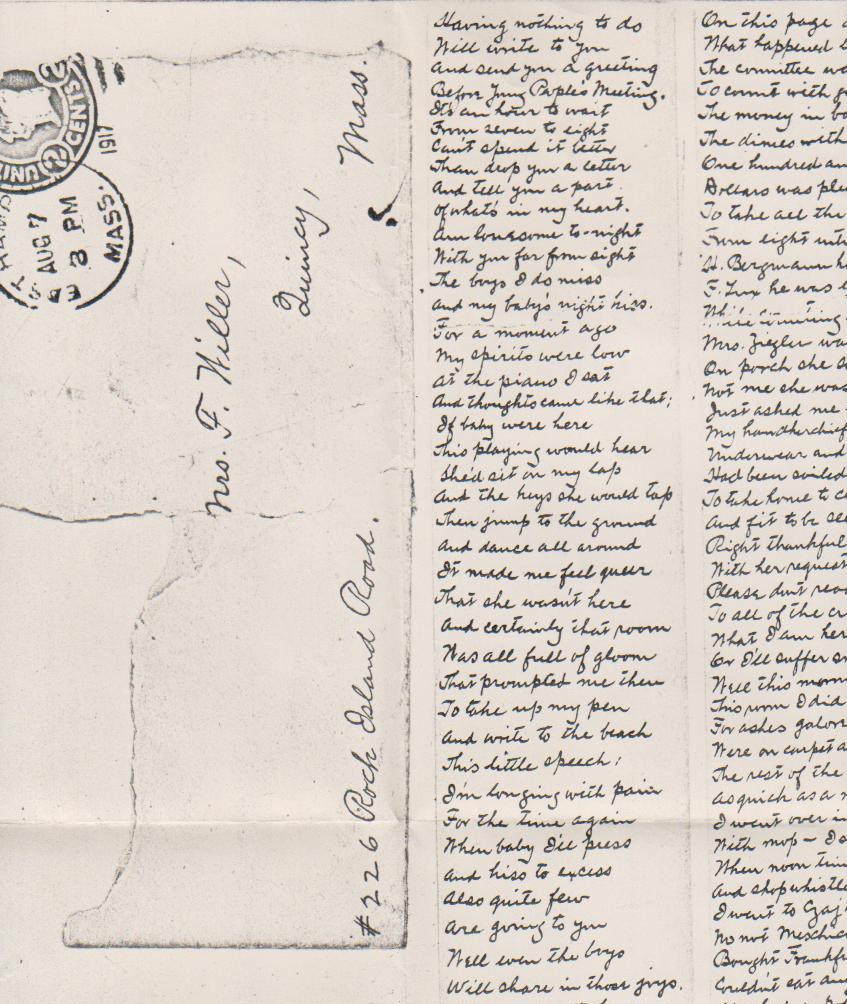 UNI
2 CENTS 2
AUG 7
3 PM
1917
MASS.
Mrs. F. Willer,
Quincy, Mass.
#226 Rock Island Road.
Having nothing to do
Will write to you
And send you a greeting
Before Yung People's Meeting.
It's an hour to wait
From seven to eight
Can't spend it better
Than drop you a letter
And tell you a part
Of what's in my heart.
Am lonesome to-night
With you far from sight
The boys I do miss
And my baby's night kiss.
For a moment ago
My spirits were low
At the piano I sat
And thoughts came like that;
If baby were here
This playing would hear
She'd sit on my lap
And the keys she would tap
Then jump to the ground
And dance all around
It made me feel queer
That she wasn't here
And certainly that room
Was all full of gloom
That prompted me then
To take up my pen
And write to the beach
This little speech;
I'm longing with pain
For the time again
When baby I'll press
And kiss to excess
Also quite few
Are going to you
Well even the boys
Will share in those joys.
On this page
What happened
The committee
To count with
The money in
The dimes with
One hundred an
Dollars was
To take all the
From eight
H. Bergmann
F. Lux he was
Mrs. Ziegler wa
On porch she
Not me she was
Just asked me
My handkerchief
Underwear and
Had been soiled
To take home to
And fit to be
Right thankful
With her request
Please don't
To all of the
What I am her
Or I'll suffer
Well this morn
This room I did
For ashes galor
Were on carpet a
The rest of the
As quick as a
I went over in
With mop - I
When noon tim
And shop whistle
I went to
No not
Bought Frankf
Couldn't eat